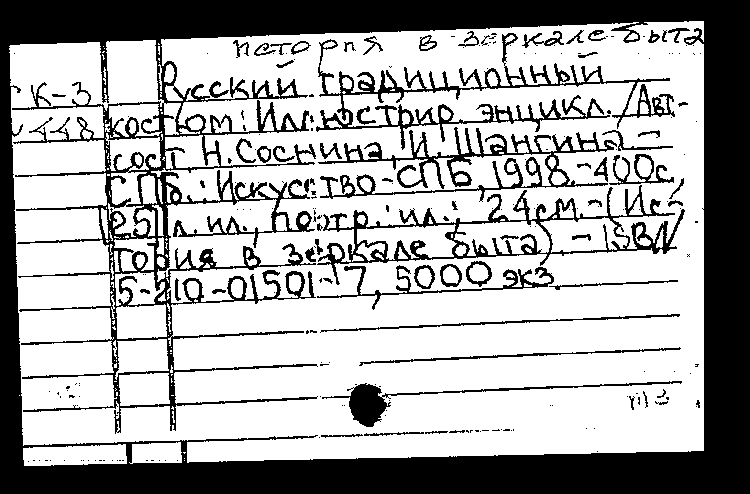 история в зеркале быта
К-3 Русский традиционный
448 костюм: Иллюстрир. энцикл. /Авт.-
сост. Н. Соснина, И. Шангина.-
СПб.: Искусство-СПБ, 1998.-400с.,
[25] л. ил., портр.: ил.; 24см.-(Ис-
тория в зеркале быта).-ISBN
5-210-01501-7, 5000 экз.